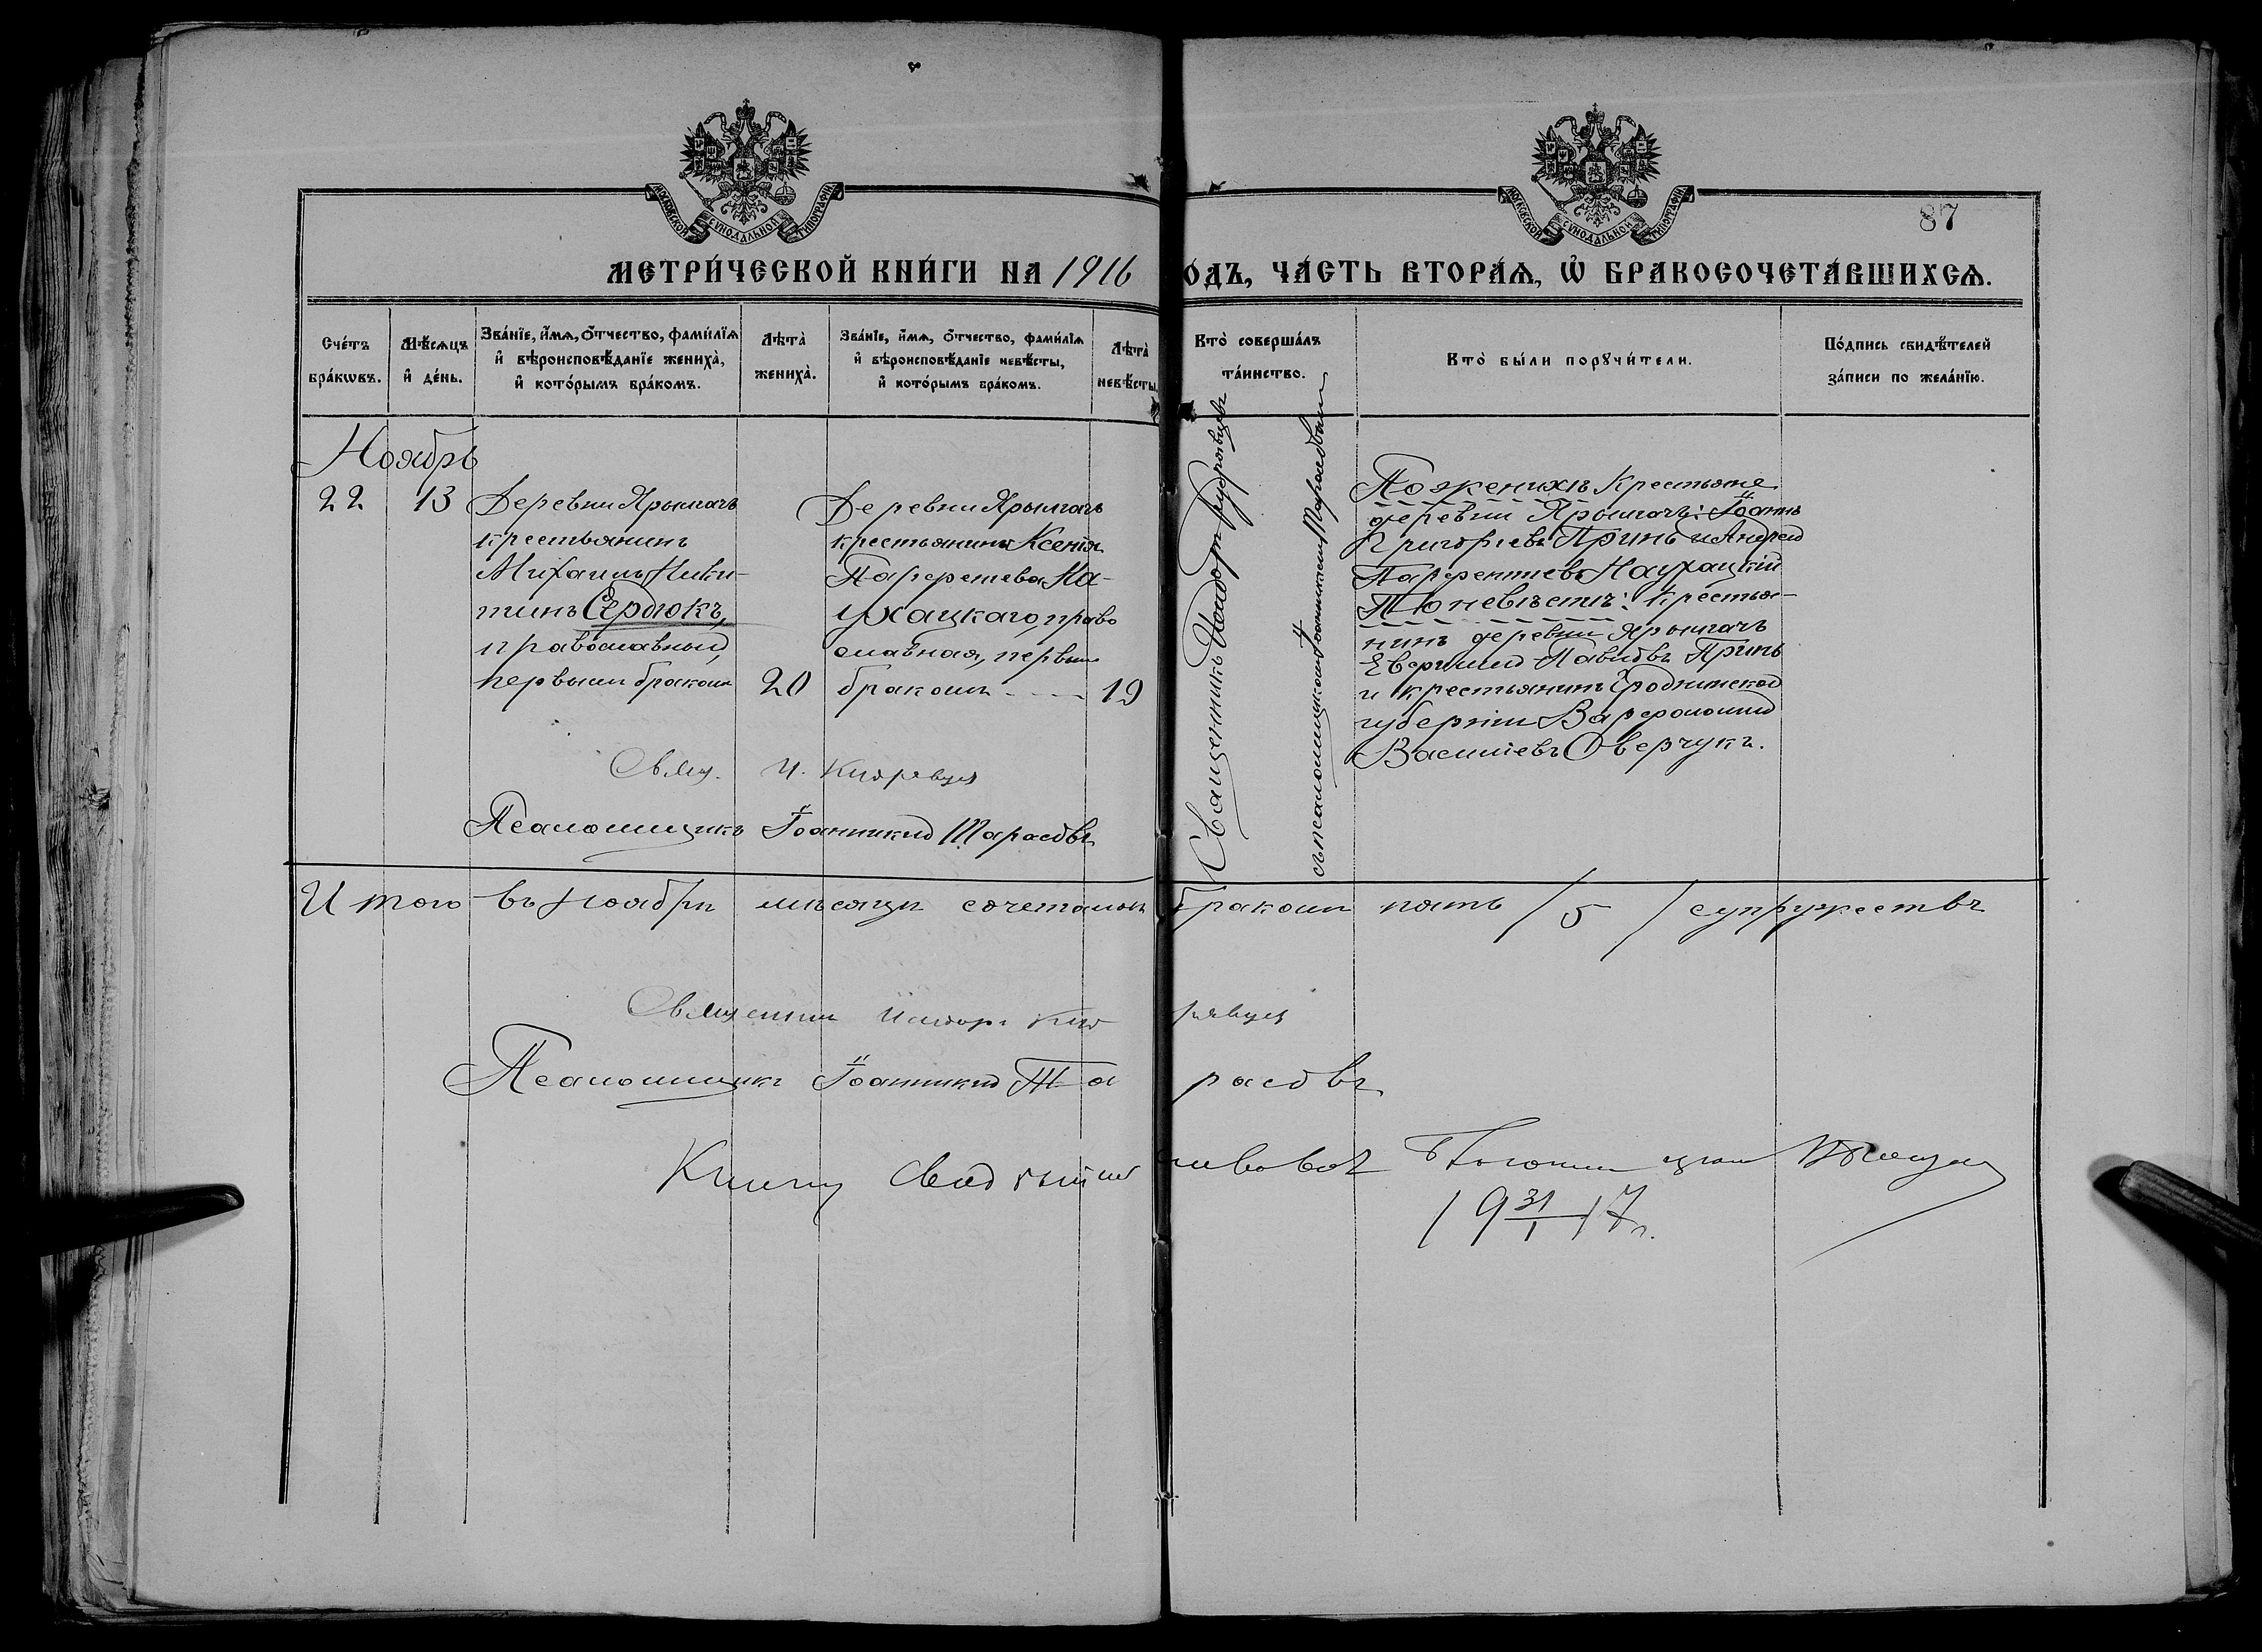 МОСКОВСКОЙ СѴНОДАЛЬНОЙ ТИПОГРАФІИ
МОСКОВСКОЙ СѴНОДАЛЬНОЙ ТИПОГРАФІИ
87
МЕТРИ́ЧЕСКОЙ КНИ́ГИ НА 1916
ОДЪ, ЧА́СТЬ ВТОРА́Ѧ, Ѽ БРАКОСОЧЕТА́ВШИХСѦ.
Сче́тъ
бра́кѡвъ.
Мѣ́сѧцъ
и҆ де́нь.
Зва́нїе, и҆́мѧ, ѻ҆́тчество, фами́лїѧ
и҆ вѣроисповѣ́данїе жениха̀,
и҆ кото́рымъ бра́комъ.
Лѣта̀
жениха̀.
Зва́нїе, и҆́мѧ, ѻ҆́тчество, фами́лїѧ
и҆ вѣроисповѣ́данїе невѣ́сты,
и҆ кото́рымъ бра́комъ.
Лѣта̀
невѣ́сты
Кто̀ соверша́лъ
та́инство.
Кто̀ бы́ли порꙋчи́тели.
По́дпись свидѣ́телей
за́писи по жела́нїю.
Ноябрь
22
13
Деревни Ярымачъ
крестьянинъ
Михаилъ Ники-
тинъ Сердюкъ,
православный,
первымъ бракомъ
20
Деревни Ярымачъ
крестьянина Ксенія
На-
ухацкаго, право
славная, первымъ
бракомъ
19
Священникъ Исидоръ
съ псаломщикомъ Іоанникіемъ Тарасовымъ
По женихѣ: Крестьяне
деревни Ярымачъ: Іоаннъ
Григорьевъ Принь и Андрей
Парфентьевъ Наухацкій
По невѣстѣ: крестья-
нинъ деревни Ярымачъ
Принь
и крестьянинъ Гродненской
губерніи Варфоломей
Василіевъ Оверчукъ.
Свящ. И.
Псаломщикъ Іоанникій Тарасовъ
Итого въ Ноябрѣ мѣсяцѣ сочеталось бракомъ пять /5/ супружествъ
Священник Исидоръ
Псаломщикъ Іоанникій Тарасовъ
Книгу
19 31/1 17 г.